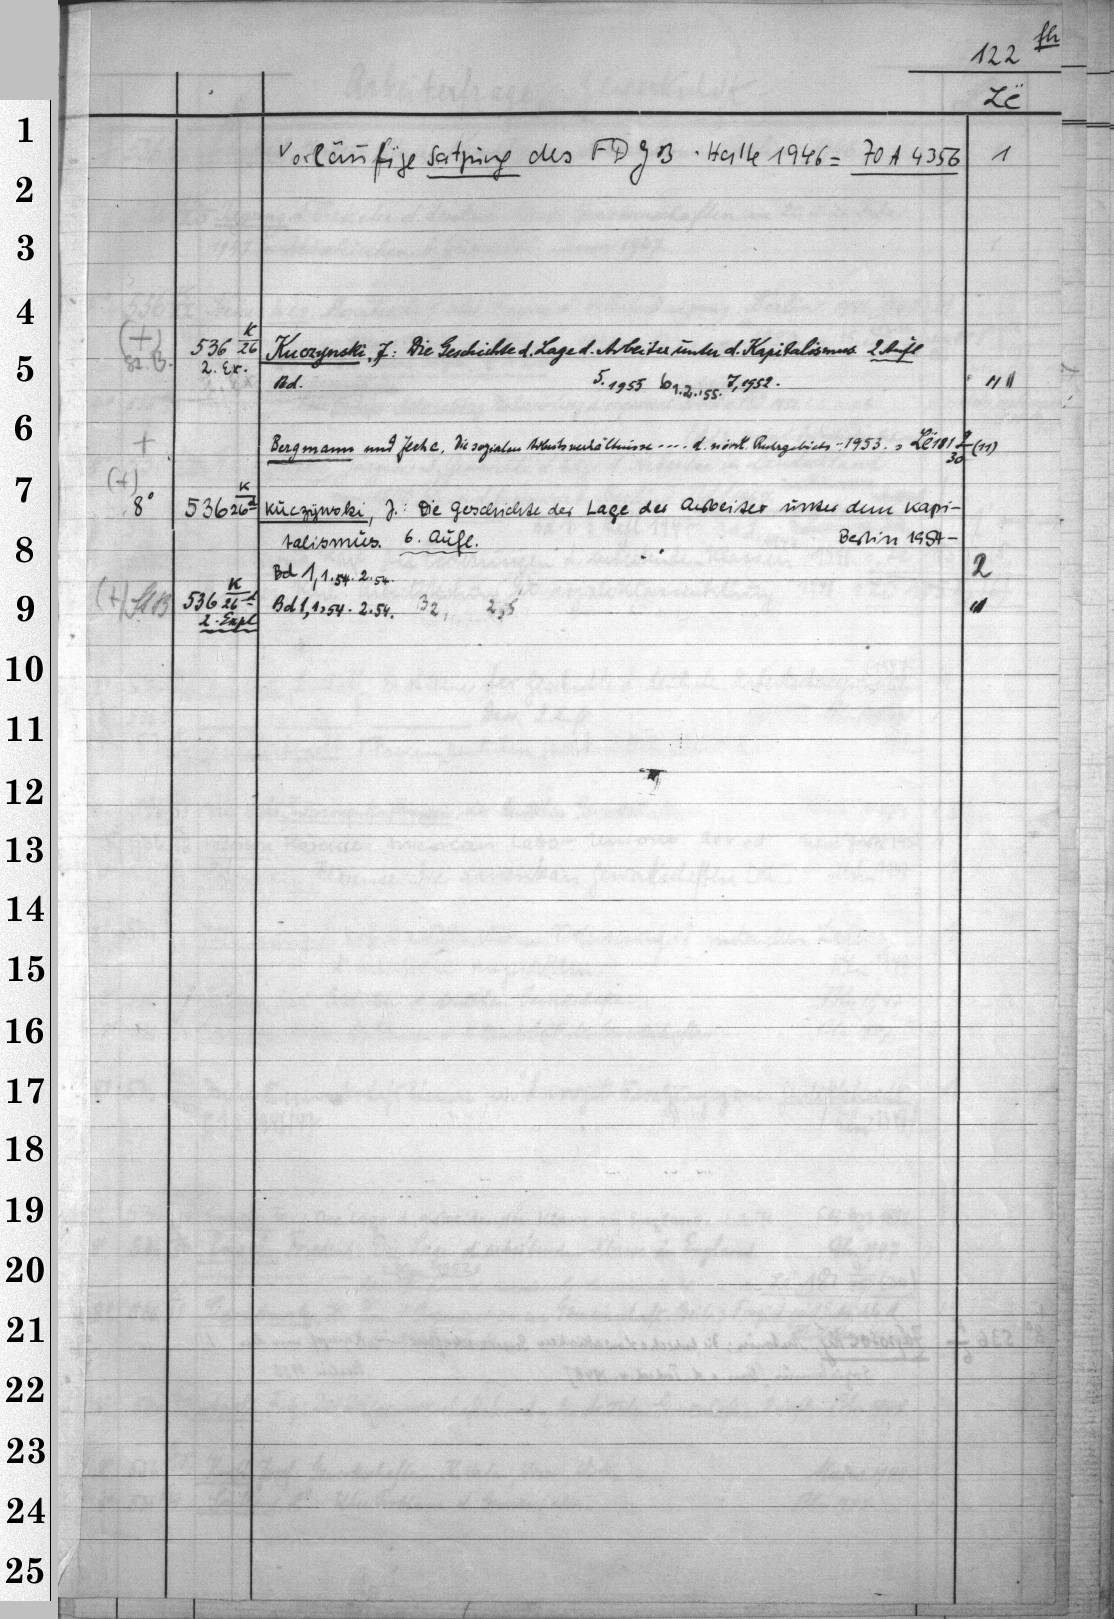 122 fh
Zë
1
Vorläufige Satzung des FDGB. Halle 1946 = 70 A 4356 1
2
3
4
(+) 536 K/26 Kuczynski, J.: Die Geschichte d. Lage d. Arbeiter unter d. Kapitalismus 2 Aufl
St. B. 2. Ex.
5
Bd. 5.1955 6,1.2.'55. 7,1952. 11 11
6
+ Bergmann und Zerche, Die sozialen Arbeitsverhältnisse .... d. nördl. Ruhrgebiets - 1953. = Zë 181 9/30 (11)
7
(+)
8° 536 K/26d Kuczynski, J.: Die Geschichte der Lage der Arbeiter unter dem Kapi-
8
talismus. 6. Aufl. Berlin 1954-
Bd 1,1.54. 2.54. 2
9
(+) St B 536 K/26d Bd 1,1.54. 2.54. B 2, 2,5 11
2. Expl
10
11
12
13
14
15
16
17
18
19
20
21
22
23
24
25